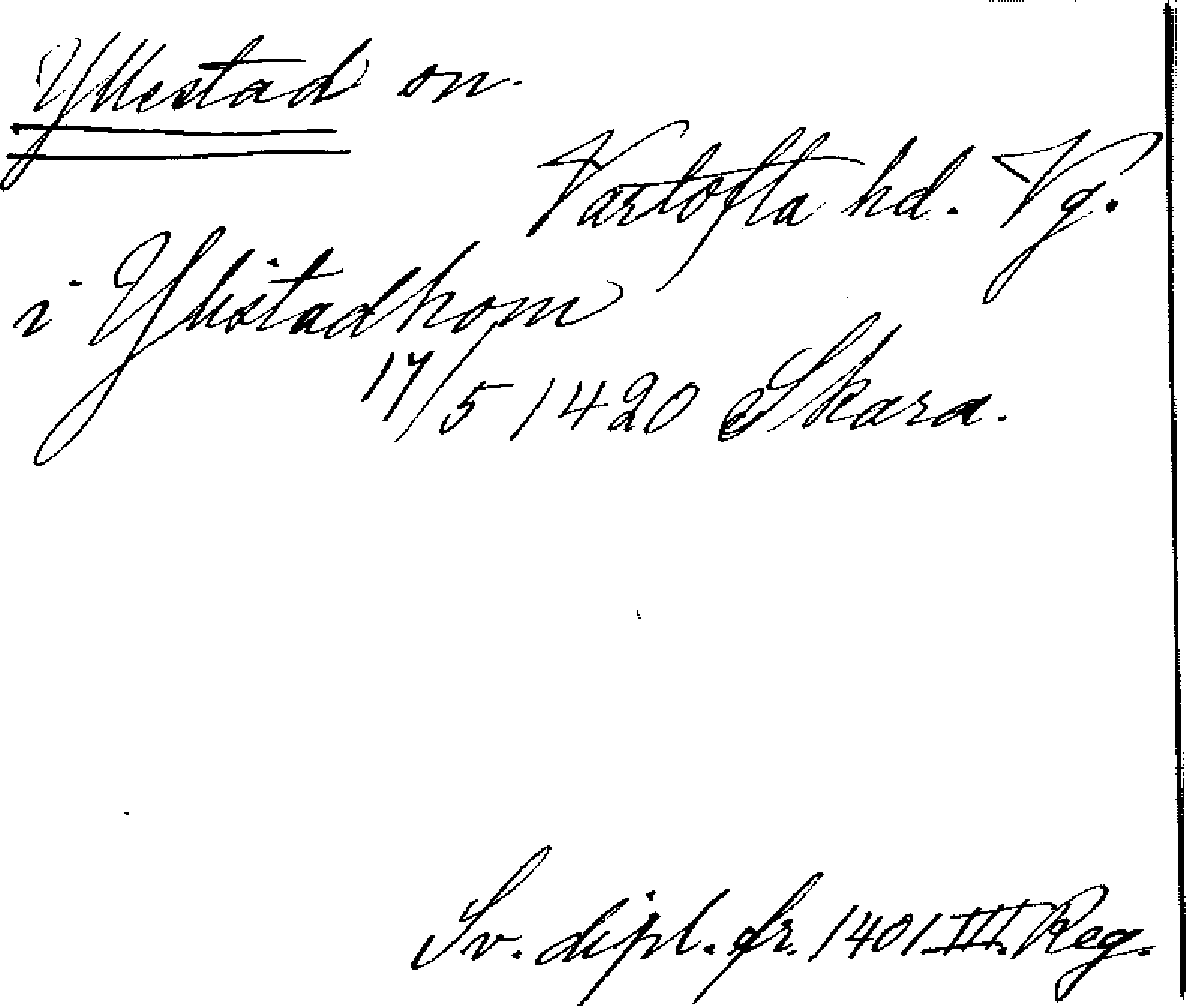 Yllestad sn.
Vartofta hd. Vg.
i Ylistadhom
17/5 1420 Skara.
Sv. dipl. fr. 1401 III. Reg.